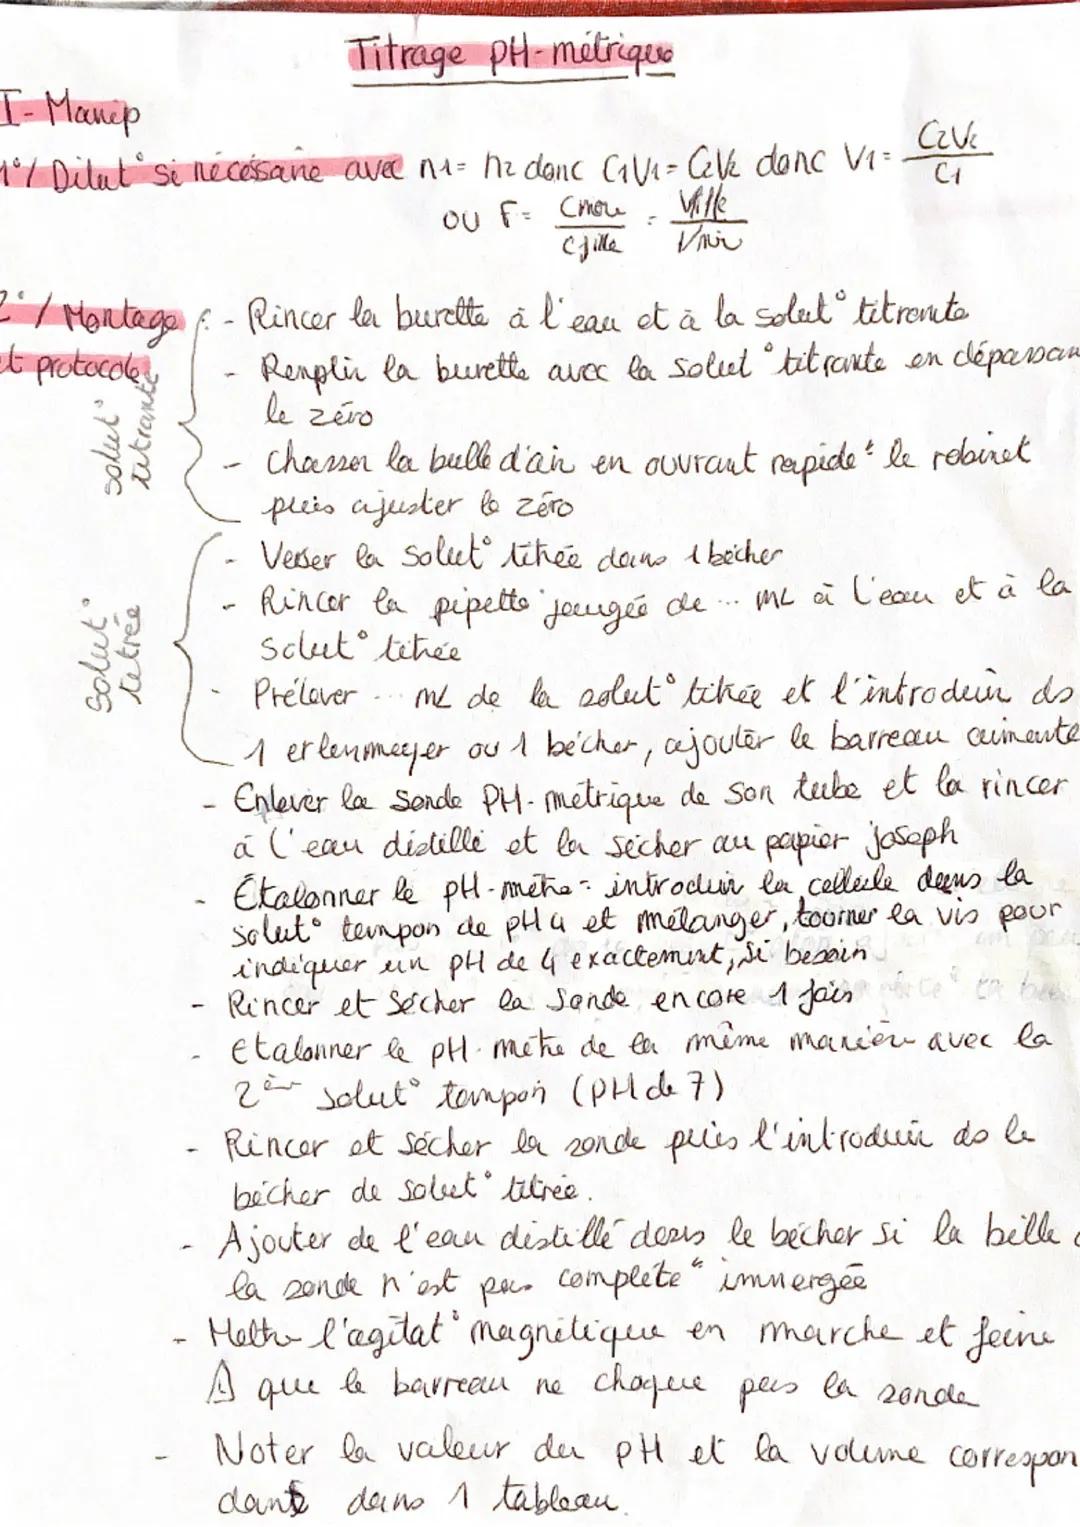 Titrage pH-métrique
I- Manip
1°/ Dilut° si nécéssaire avec n1 = n2 donc C1V1 = C2V2 donc V1 = C2V2 / C1
ou F = Cmère / Cfille = Vfille / Vmèr
2°/ Montage et protocole
solut° titrante
- Rincer la burette à l'eau et à la solut° titrante
- Remplir la burette avec la solut° titrante en dépassan
le zéro
- Chasser la bulle d'air en ouvrant rapide^t le robinet
puis ajuster le zéro
solut° titrée
- Verser la solut° titrée dans 1 bécher
- Rincer la pipette jaugée de ... mL à l'eau et à la
solut° titrée
- Prélever ... mL de la solut° titrée et l'introduir ds
1 erlenmeyer ou 1 bécher, ajouter le barreau aimante
- Enlever la sonde pH-métrique de son tube et la rincer
à l'eau distillé et la sécher au papier joseph
- Étalonner le pH-mètre : introduir la cellule dans la
solut° tampon de pH 4 et mélanger, tourner la vis pour
indiquer un pH de 4 exactement, si besoin
- Rincer et sécher la sonde encore 1 fois
- Etalonner le pH-mètre de la même manièr avec la
2èm solut° tampon (pH de 7)
- Rincer et sécher la sonde puis l'introduir ds le
bécher de solut° titrée.
- Ajouter de l'eau distillé dans le bécher si la bille
la sonde n'est pas complète^t immergée
- Mettre l'agitat° magnétique en marche et feire
⚠ que le barreau ne choque pas la sonde
- Noter la valeur du pH et la volume correspon
dants dans 1 tableau.